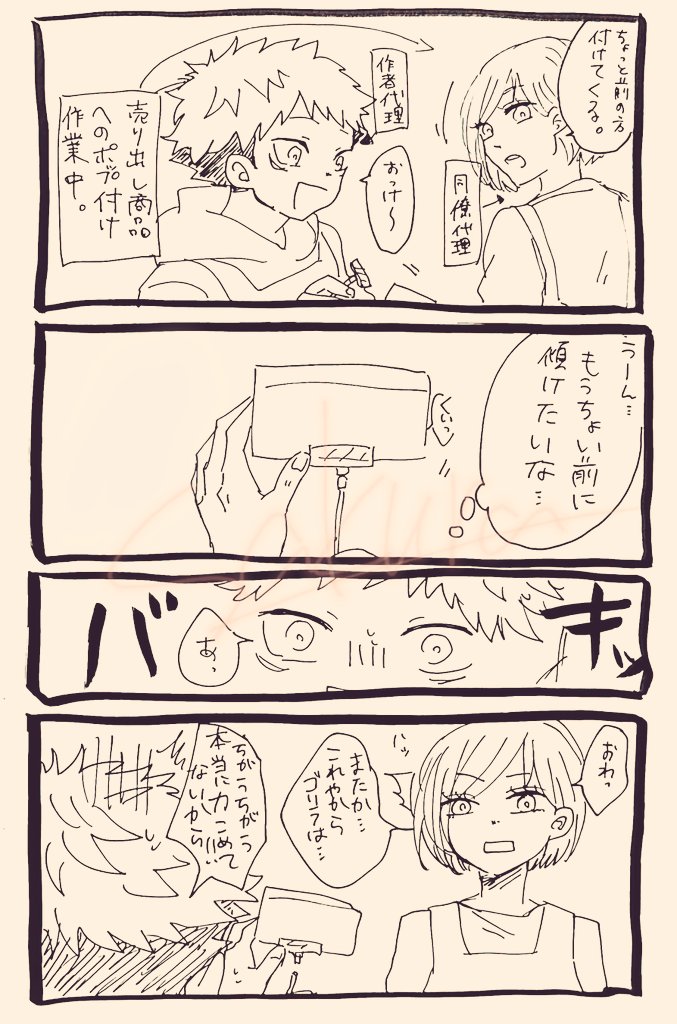 ちょっと前の方
付けてくる。
作者代理
おっけ〜
同僚代理
売り出し商品
へのポップ付け
作業中。
うーん…
もうちょい前に
傾けたいな…
くいっ
バキッ
あっ
おわっ
またか…
これやから
ゴリラは…
ちがうちがう
本当に力こめて
ないから